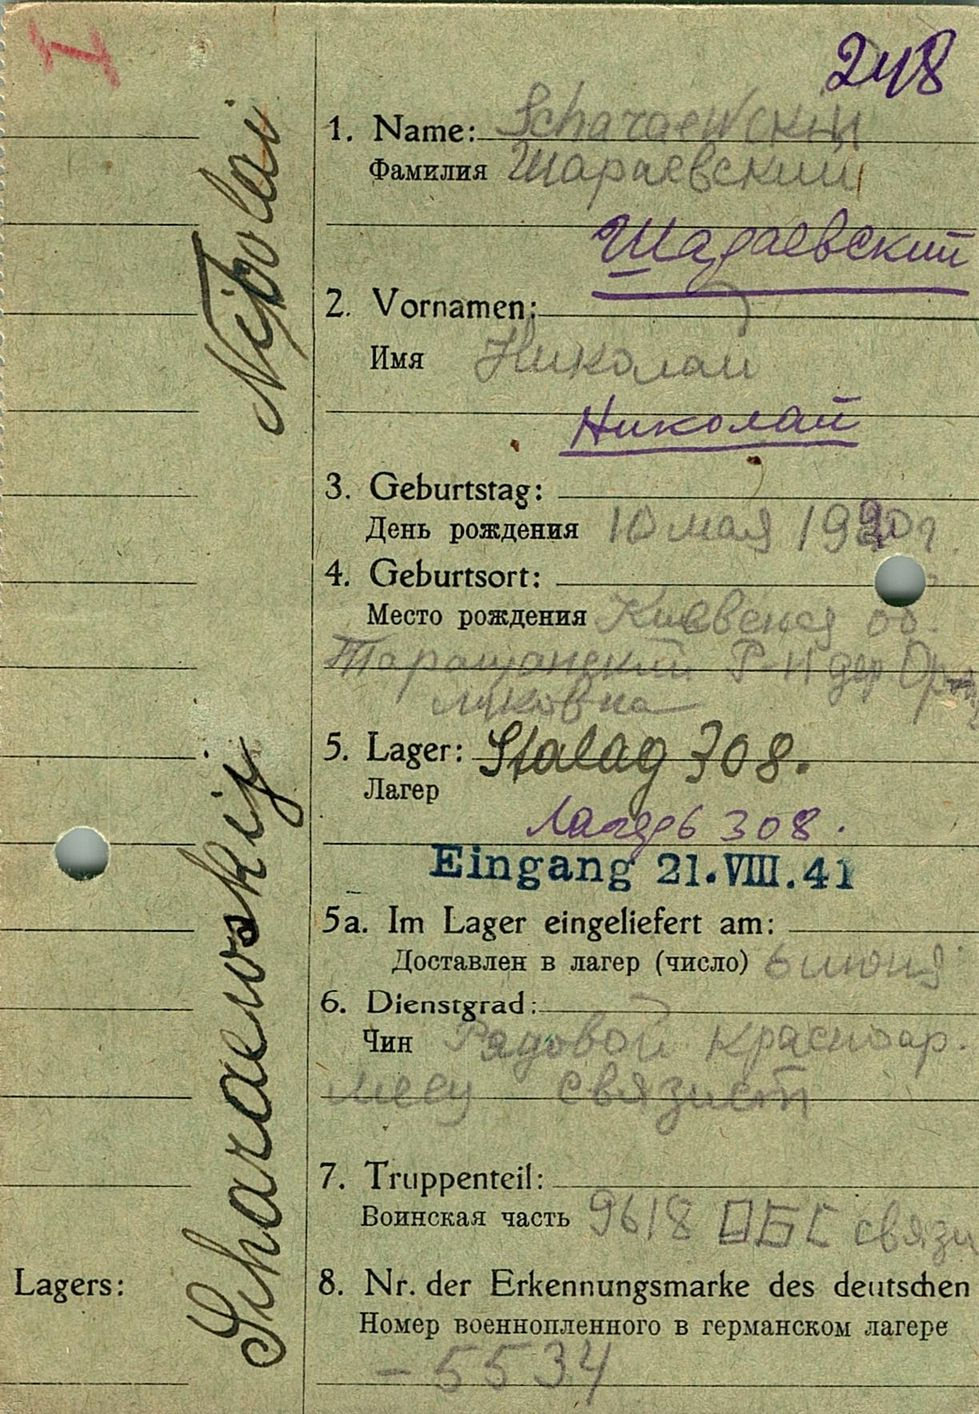 I
248
1. Name: Scharaewский
Фамилия Шараевский
Шадаевский
2. Vornamen:
Имя Николай
Николай
3. Geburtstag:
День рождения 10 мая 1920г.
4. Geburtsort:
Место рождения Киевския об.
Таращанский р-н дер
ликовка
5. Lager: Stalag 308.
Лагер
Лагерь 308.
Eingang 21.VIII.41
5a. Im Lager eingeliefert am:
Доставлен в лагер (число) 6 июня
6. Dienstgrad:
Чин Рядовой Красноар.
меец связист
7. Truppenteil:
Воинская часть 9618 ОБС связи
Lagers:
8. Nr. der Erkennungsmarke des deutschen
Номер военнопленного в германском лагере
- 5534
Scharaewskij Nikolai